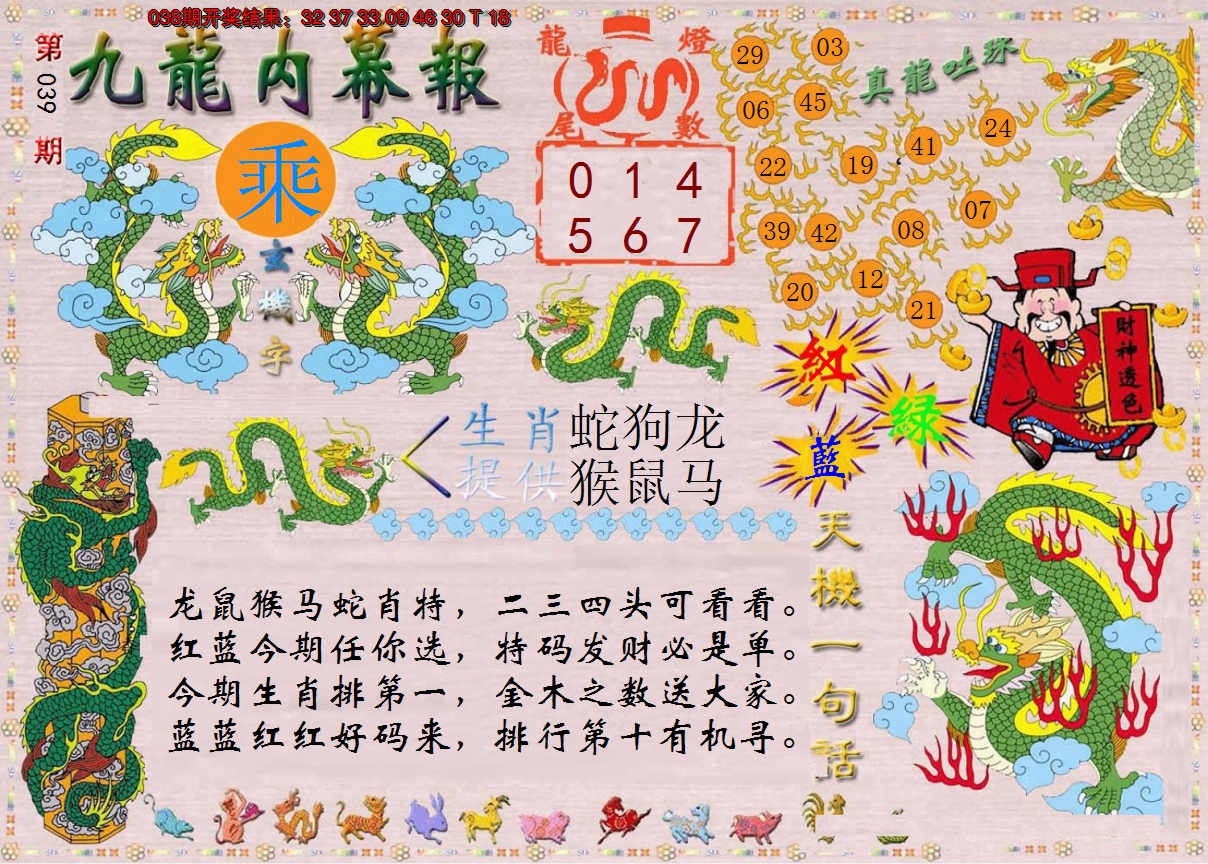 038期开奖结果：32 37 33 09 46 30 T 18
第
039
期
九龍内幕報
乘
玄
機
字
龍 燈
尾 數
0 1 4
5 6 7
真龍吐珠
29
03
06
45
41
24
22
19
39
42
08
07
20
12
21
紅
綠
藍
財神透色
生肖
提供
蛇狗龙
猴鼠马
龙鼠猴马蛇肖特，二三四头可看看。
红蓝今期任你选，特码发财必是单。
今期生肖排第一，金木之数送大家。
蓝蓝红红好码来，排行第十有机寻。
天機一句話